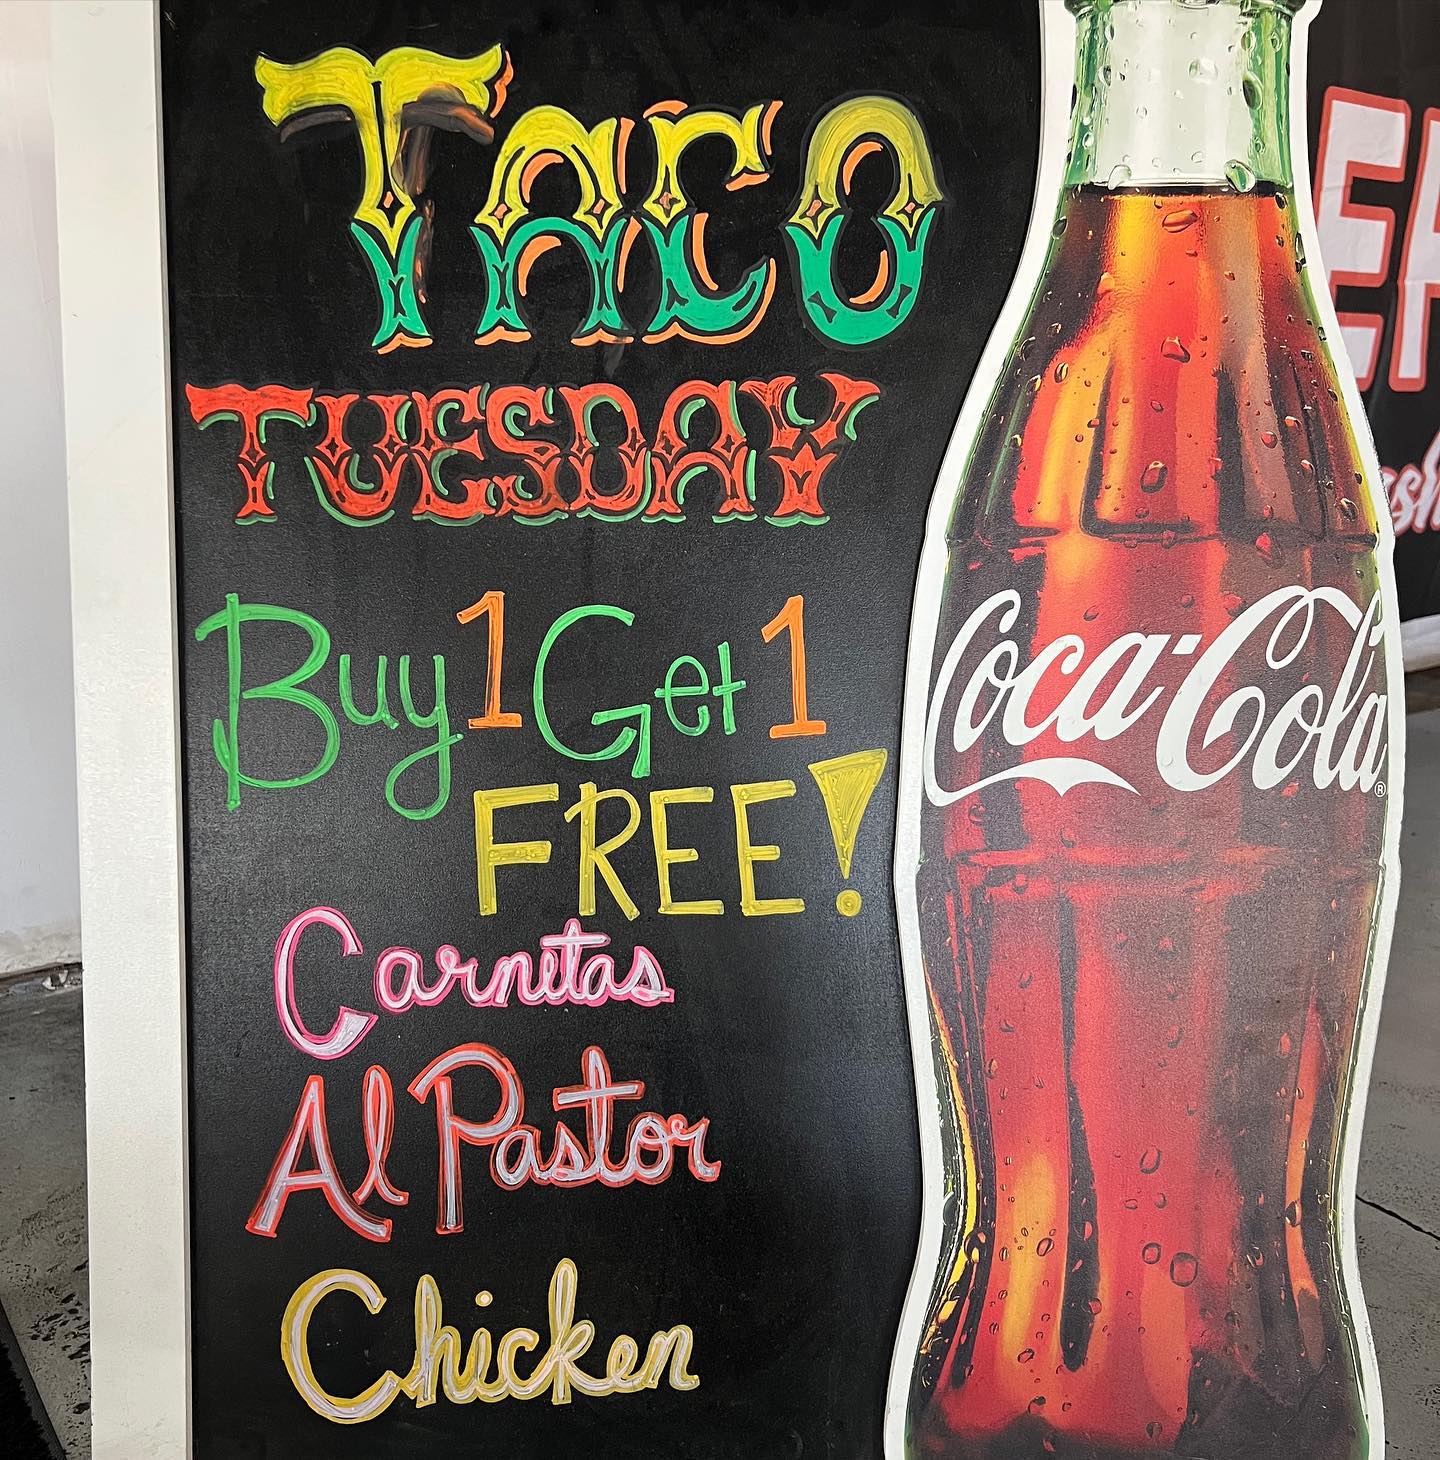 TACO
TUESDAY
Buy 1 Get 1
FREE!
Carnitas
Al Pastor
Chicken
Coca-Cola®